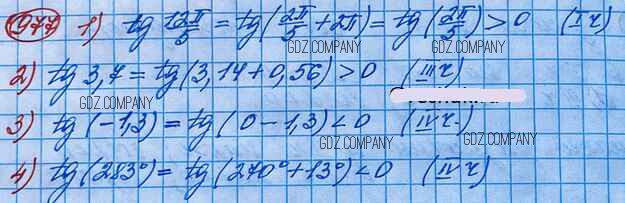 977 1) tg 12π/5 = tg(2π/5 + 2π) = tg(2π/5) > 0 (I ч)
GDZ.COMPANY GDZ.COMPANY
2) tg 3,7 = tg(3,14 + 0,56) > 0 (III ч)
GDZ.COMPANY GDZ.COMPANY
3) tg(-1,3) = tg(0 - 1,3) < 0 (IV ч.)
GDZ.COMPANY GDZ.COMPANY
4) tg(283°) = tg(270° + 13°) < 0 (IV ч)